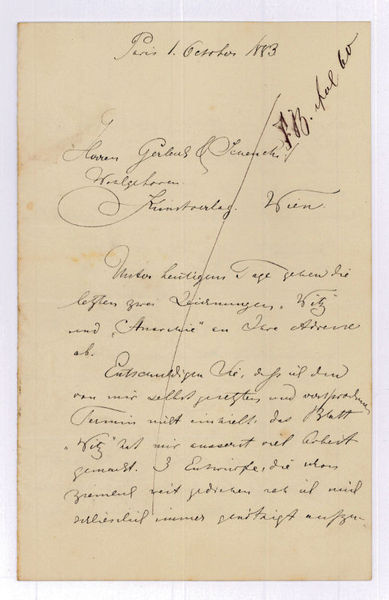 Paris 1. October 1883
Herren Gerlach & Schenck
Wohlgeboren
Kunstverlag. Wien.
Unter heutigem Tage gehen die
letzten zwei Zeichnungen, "Witz"
und "Anarchie" an Ihre Adresse
ab.
Entschuldigen Sie, dass ich den
von mir selbst gesetzten und versprochenen
Termin nicht einhielt, das Blatt
"Witz" hat mir äusserst viel Arbeit
gemacht. 3 Entwürfe, die schon
ziemlich weit gediehen sah ich mich
schliesslich immer genötigt aufzu-